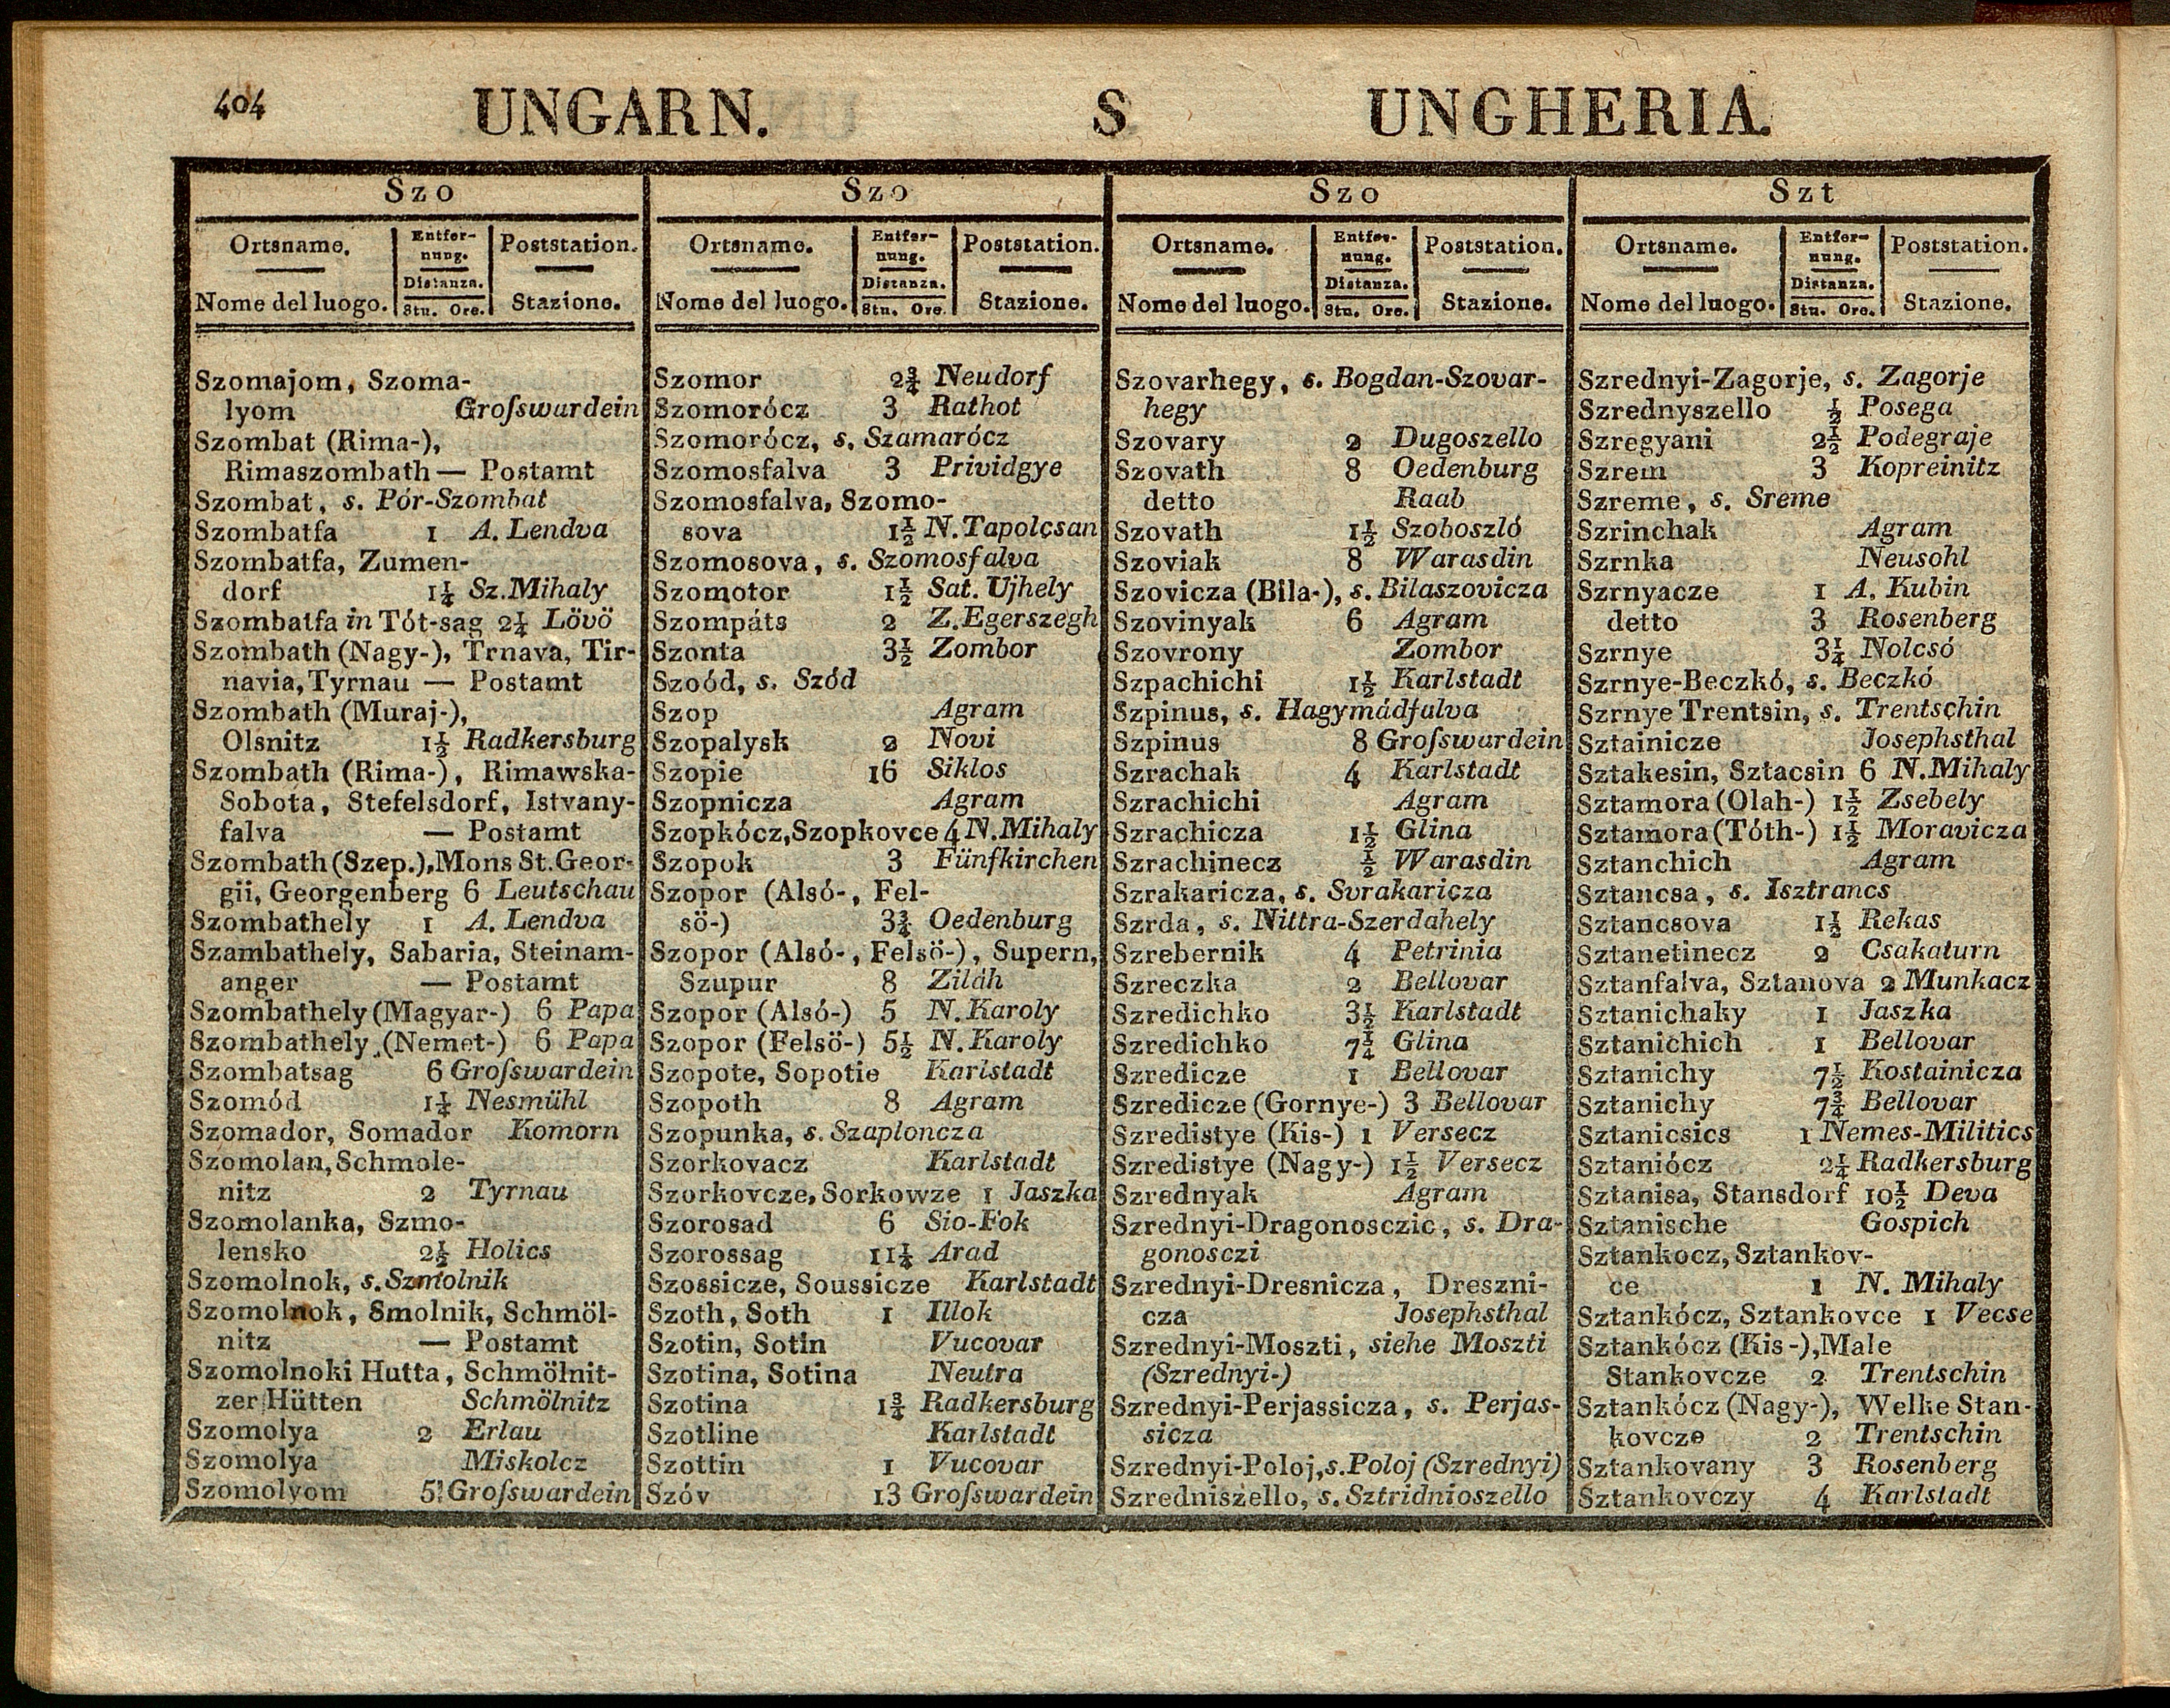 404
UNGARN.
S
UNGHERIA.
Szo
Ortsname.
Nome del luogo.
Entfer-
nung.
Distanza.
Stn. Ore.
Poststation.
Stazione.
Szomajom, Szoma-
lyom Groſswardein
Szombat (Rima-),
Rimaszombath — Postamt
Szombat, s. Pór-Szombat
Szombatfa 1 A. Lendva
Szombatfa, Zumen-
dorf 1¼ Sz. Mihaly
Szombatfa in Tót-sag 2¼ Lövö
Szombath (Nagy-), Trnava, Tir-
navia, Tyrnau — Postamt
Szombath (Muraj-),
Olsnitz 1½ Radkersburg
Szombath (Rima-), Rimawska-
Sobota, Stefelsdorf, Istvany-
falva — Postamt
Szombath (Szep.), Mons St. Geor-
gii, Georgenberg 6 Leutschau
Szombathely 1 A. Lendva
Szambathely, Sabaria, Steinam-
anger — Postamt
Szombathely (Magyar-) 6 Papa
Szombathely (Nemet-) 6 Papa
Szombatsag 6 Groſswardein
Szomód 1¼ Nesmühl
Szomador, Somador Komorn
Szomolan, Schmole-
nitz 2 Tyrnau
Szomolanka, Szmo-
lensko 2½ Holics
Szomolnok, s. Szmolnik
Szomolnok, Smolnik, Schmöl-
nitz — Postamt
Szomolnoki Hutta, Schmölnit-
zer Hütten Schmölnitz
Szomolya 2 Erlau
Szomolya Miskolcz
Szomolyom 5 Groſswardein
Szo
Ortsname.
Nome del luogo.
Entfer-
nung.
Distanza.
Stn. Ore.
Poststation.
Stazione.
Szomor 2¾ Neudorf
Szomorócz 3 Rathot
Szomorócz, s. Szamarócz
Szomosfalva 3 Prividgye
Szomosfalva, Szomo-
sova 1½ N. Tapolcsan
Szomosova, s. Szomosfalva
Szomotor 1½ Sat. Ujhely
Szompáts 2 Z. Egerszegh
Szonta 3½ Zombor
Szoód, s. Szód
Szop Agram
Szopalysk 2 Novi
Szopie 16 Siklos
Szopnicza Agram
Szopkócz, Szopkovce 4 N. Mihaly
Szopok 3 Fünfkirchen
Szopor (Alsó-, Fel-
sö-) 3¾ Oedenburg
Szopor (Alsó-, Felsö-), Supern,
Szupur 8 Ziláh
Szopor (Alsó-) 5 N. Karoly
Szopor (Felsö-) 5½ N. Karoly
Szopote, Sopotie Karlstadt
Szopoth 8 Agram
Szopunka, s. Szaploncza
Szorkovacz Karlstadt
Szorkovcze, Sorkowze 1 Jaszka
Szorosad 6 Sio-Fok
Szorossag 11¼ Arad
Szossicze, Soussicze Karlstadt
Szoth, Soth 1 Illok
Szotin, Sotin Vucovar
Szotina, Sotina Neutra
Szotina 1¾ Radkersburg
Szotline Karlstadt
Szottin 1 Vucovar
Szóv 13 Groſswardein
Szo
Ortsname.
Nome del luogo.
Entfer-
nung.
Distanza.
Stn. Ore.
Poststation.
Stazione.
Szovarhegy, s. Bogdan-Szovar-
hegy
Szovary 2 Dugoszello
Szovath 8 Oedenburg
detto Raab
Szovath 1½ Szoboszló
Szoviak 8 Warasdin
Szovicza (Bila-), s. Bilaszovicza
Szovinyak 6 Agram
Szovrony Zombor
Szpachichi 1½ Karlstadt
Szpinus, s. Hagymádfalva
Szpinus 8 Groſswardein
Szrachak 4 Karlstadt
Szrachichi Agram
Szrachicza 1½ Glina
Szrachinecz ½ Warasdin
Szrakaricza, s. Svrakaricza
Szrda, s. Nittra-Szerdahely
Szrebernik 4 Petrinia
Szreczka 2 Bellovar
Szredichko 3½ Karlstadt
Szredichko 7¼ Glina
Szredicze 1 Bellovar
Szredicze (Gornye-) 3 Bellovar
Szredistye (Kis-) 1 Versecz
Szredistye (Nagy-) 1½ Versecz
Szrednyak Agram
Szrednyi-Dragonosczic, s. Dra-
gonosczi
Szrednyi-Dresnicza, Dreszni-
cza Josephsthal
Szrednyi-Moszti, siehe Moszti
(Szrednyi-)
Szrednyi-Perjassicza, s. Perjas-
sicza
Szrednyi-Poloj, s. Poloj (Szrednyi)
Szredniszello, s. Sztridnioszello
Szt
Ortsname.
Nome del luogo.
Entfer-
nung.
Distanza.
Stn. Ore.
Poststation.
Stazione.
Szrednyi-Zagorje, s. Zagorje
Szrednyszello ½ Posega
Szregyani 2½ Podegraje
Szrem 3 Kopreinitz
Szreme, s. Sreme
Szrinchak Agram
Szrnka Neusohl
Szrnyacze 1 A. Kubin
detto 3 Rosenberg
Szrnye 3¼ Nolcsó
Szrnye-Beczkó, s. Beczkó
Szrnye Trentsin, s. Trentschin
Sztainicze Josephsthal
Sztakesin, Sztacsin 6 N. Mihaly
Sztamora (Olah-) 1½ Zsebely
Sztamora (Tóth-) 1½ Moravicza
Sztanchich Agram
Sztancsa, s. Isztrancs
Sztancsova 1½ Rekas
Sztanetinecz 2 Csakaturn
Sztanfalva, Sztanova 2 Munkacz
Sztanichaky 1 Jaszka
Sztanichich 1 Bellovar
Sztanichy 7½ Kostainicza
Sztanichy 7¾ Bellovar
Sztanicsics 1 Nemes-Militics
Sztaniócz 2¼ Radkersburg
Sztanisa, Stansdorf 10½ Deva
Sztanische Gospich
Sztankocz, Sztankov-
ce 1 N. Mihaly
Sztankócz, Sztankovce 1 Vecse
Sztankócz (Kis-), Male
Stankovcze 2 Trentschin
Sztankócz (Nagy-), Welke Stan-
kovcze 2 Trentschin
Sztankovany 3 Rosenberg
Sztankovczy 4 Karlstadt